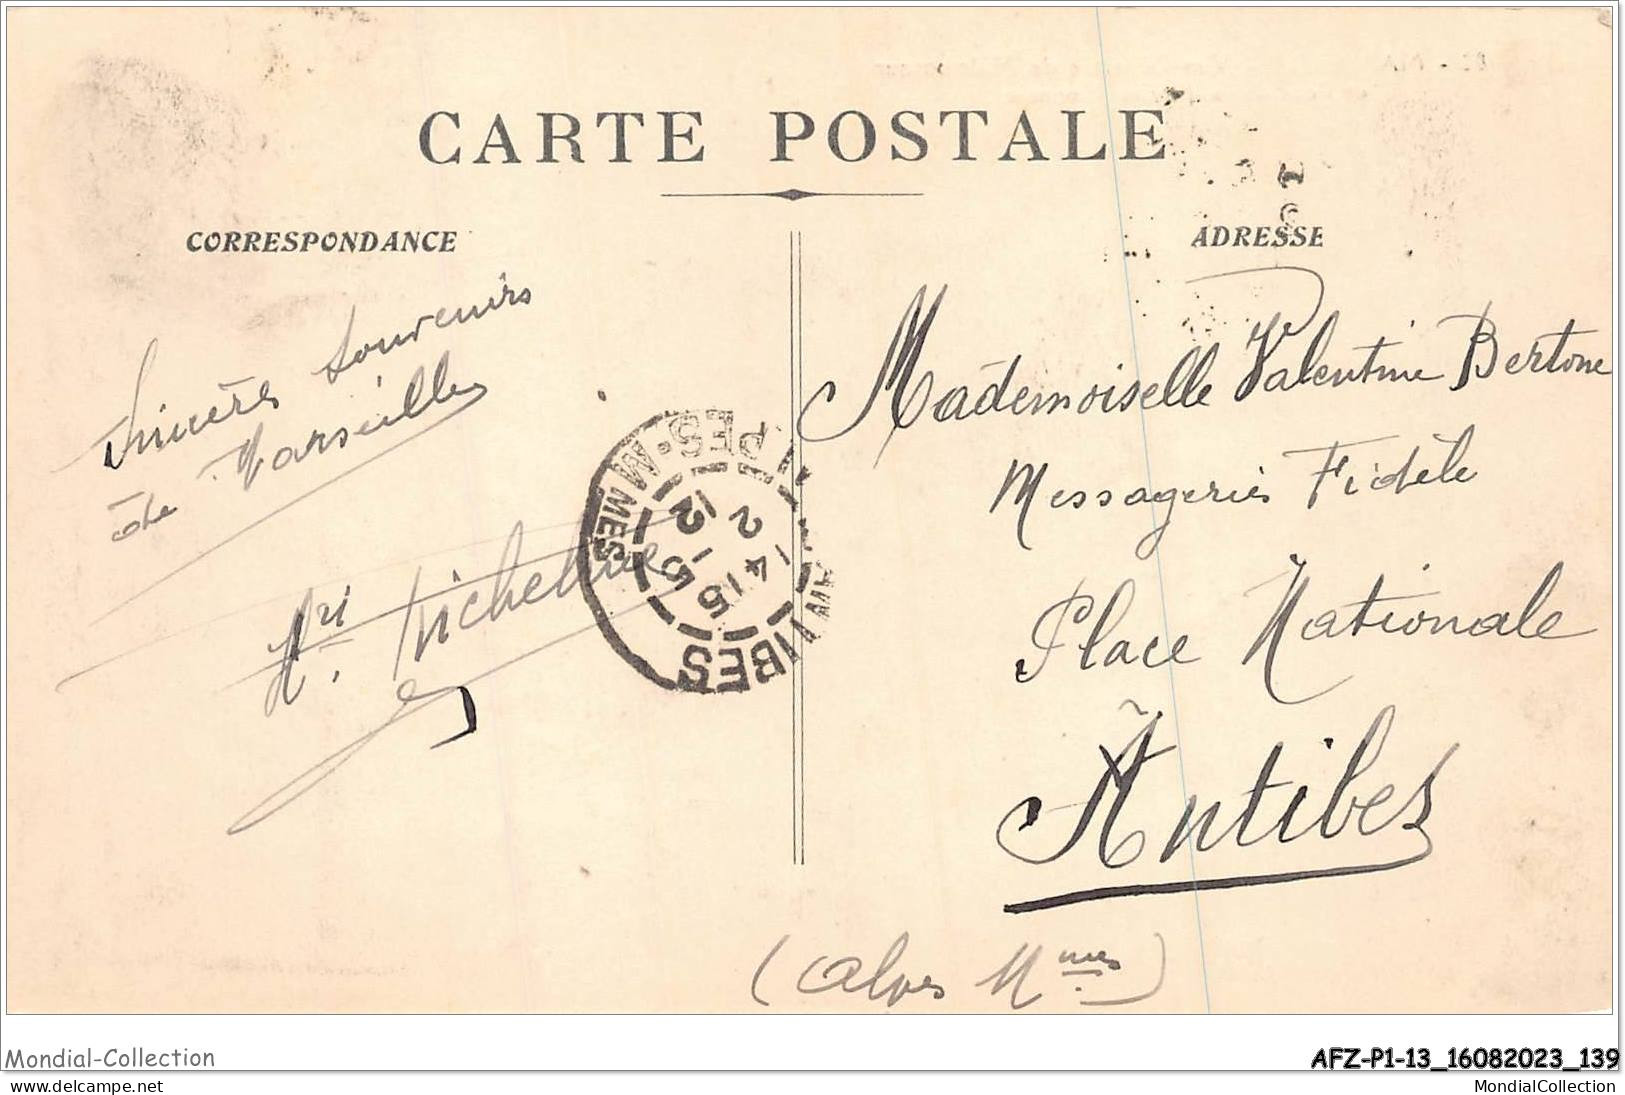 CARTE POSTALE
CORRESPONDANCE
ADRESSE
Sincères souvenirs
de Marseille
Hri. Michel
Mademoiselle Valentine Bertone
Messageries Fidèle
Place Nationale
Antibes
(Alpes Mmes)
PES-M MES
12-5
2-4 15
IBES
Mondial-Collection
www.delcampe.net
AFZ-P1-13_16082023_139
MondialCollection